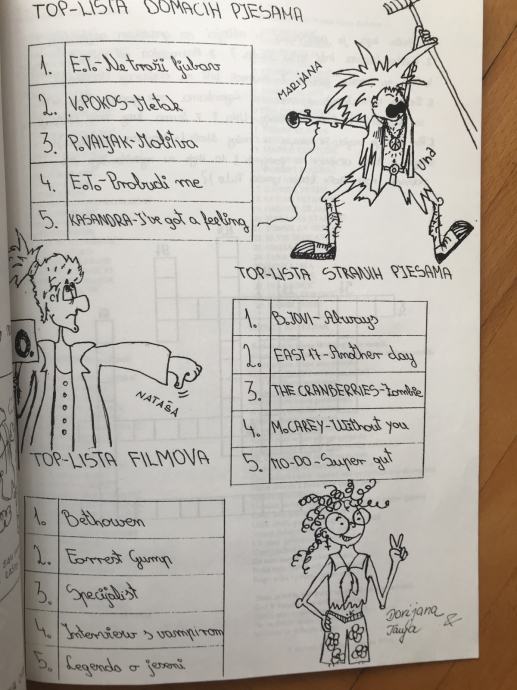 TOP-LISTA DOMAĆIH PJESAMA
1. E.T.- Ne traži ljubav
2. V.POKOS-Metak
3. P.VALJAK-Molitva
4. E.T.- Probudi me
5. KASANDRA-I've got a feeling
MARIJANA
Una
TOP-LISTA STRANIH PJESAMA
1. B.JOVI- Always
2. EAST 17-Another day
3. THE CRANBERRIES-Zombie
4. M.CAREY-Without you
5. MO-DO-Super gut
NATAŠA
TOP-LISTA FILMOVA
1. Bethowen
2. Forrest Gump
3. Specijalist
4. Interwiew s vampirom
5. Legenda o jeseni
Dorijana
&